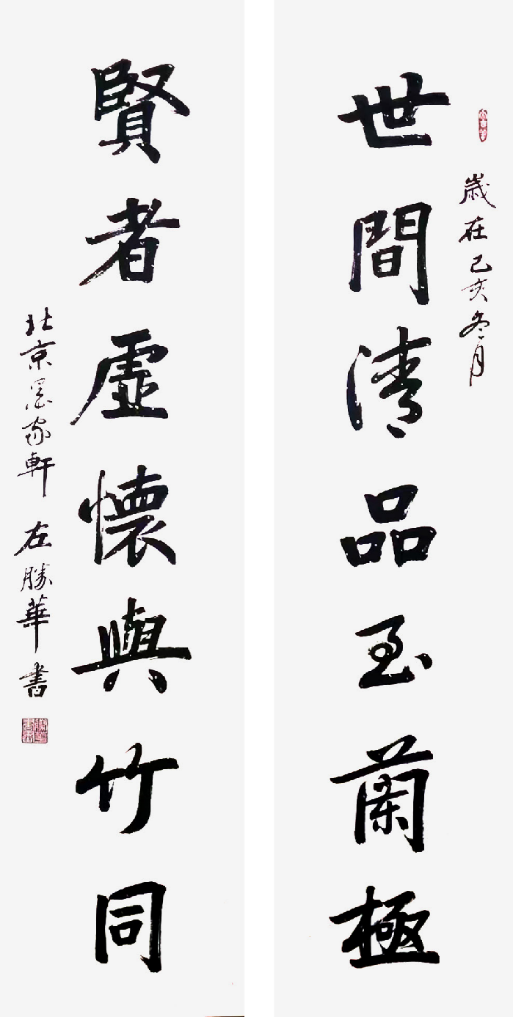 歲在己亥冬月
世間清品至蘭極
賢者虛懷與竹同
北京墨家軒 左勝華書